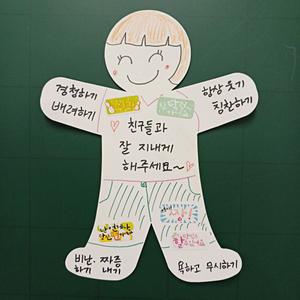 경청하기
배려하기
항상 웃기
칭찬하기
친구들과
잘 지내게
해주세요~
비난·짜증
하기 내기
욕하고 무시하기